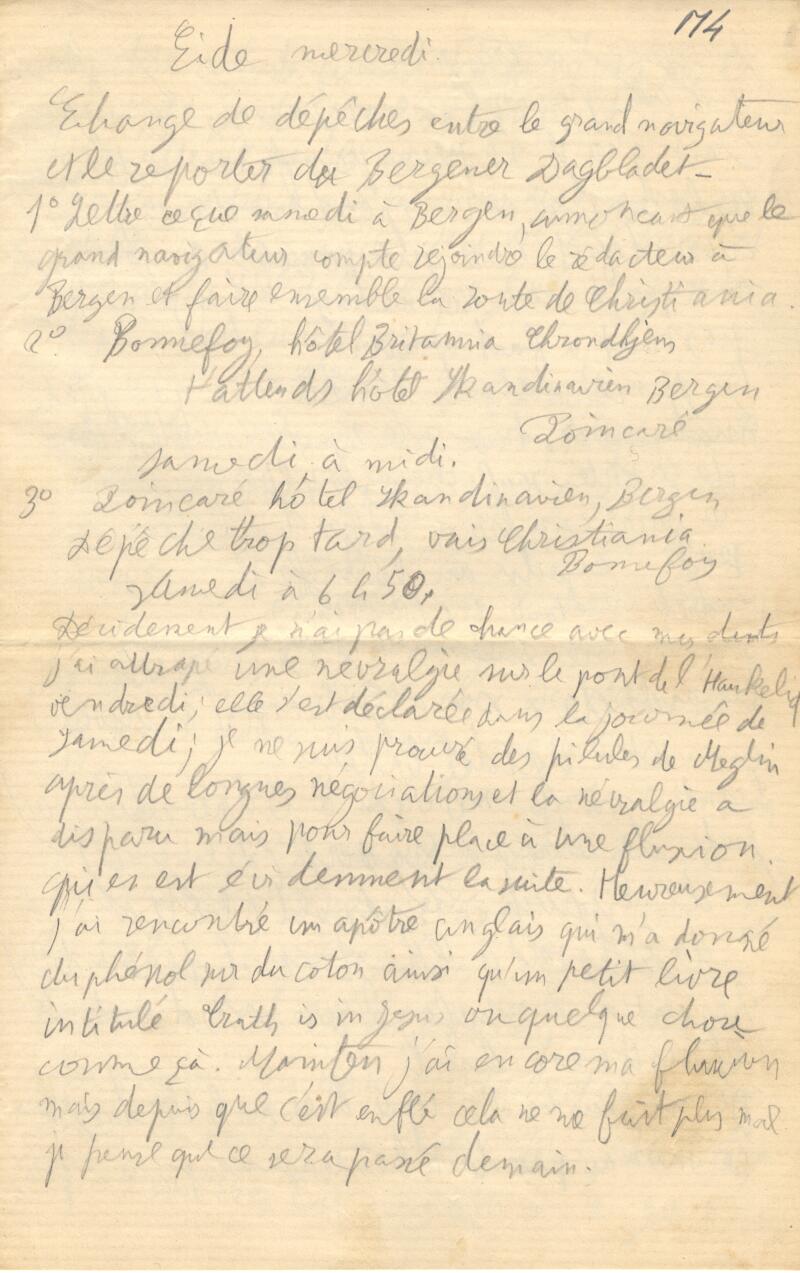 174
Eide mercredi.
Echange de dépêches entre le grand navigateur
et le reporter du Bergener Dagbladet_
1° Lettre reçue samedi à Bergen, annoncant que le
grand navigateur compte rejoindre le rédacteur à
Bergen et faire ensemble la route de Christiania.
2° Bonnefoy, hôtel Britannia Throndhjem
t'attends hôtel Skandinavien Bergen
Poincaré
samedi à midi.
3° Poincaré hôtel Skandinavien, Bergen
Dépêche trop tard, vais Christiania.
Bonnefoy
samedi à 6 h 50.
Décidement je n'ai pas de chance avec mes dents
j'ai attrapé une névralgie sur le pont de l'Haukelid
vendredi; elle s'est déclarée dans la journée de
samedi; je me suis procuré des pilules de Meglin
après de longues négociations et la névralgie a
disparu mais pour faire place à une fluxion
qui en est évidemment la suite. Heureusement
j'ai rencontré un apôtre anglais qui m'a donné
du phénol sur du coton ainsi qu'un petit livre
intitulé Truth is in Jesus ou quelque chose
comme çà. Mainten j'ai encore ma fluxion
mais depuis que c'est enflé cela ne me fait plus mal
je pense que ce sera passé demain.